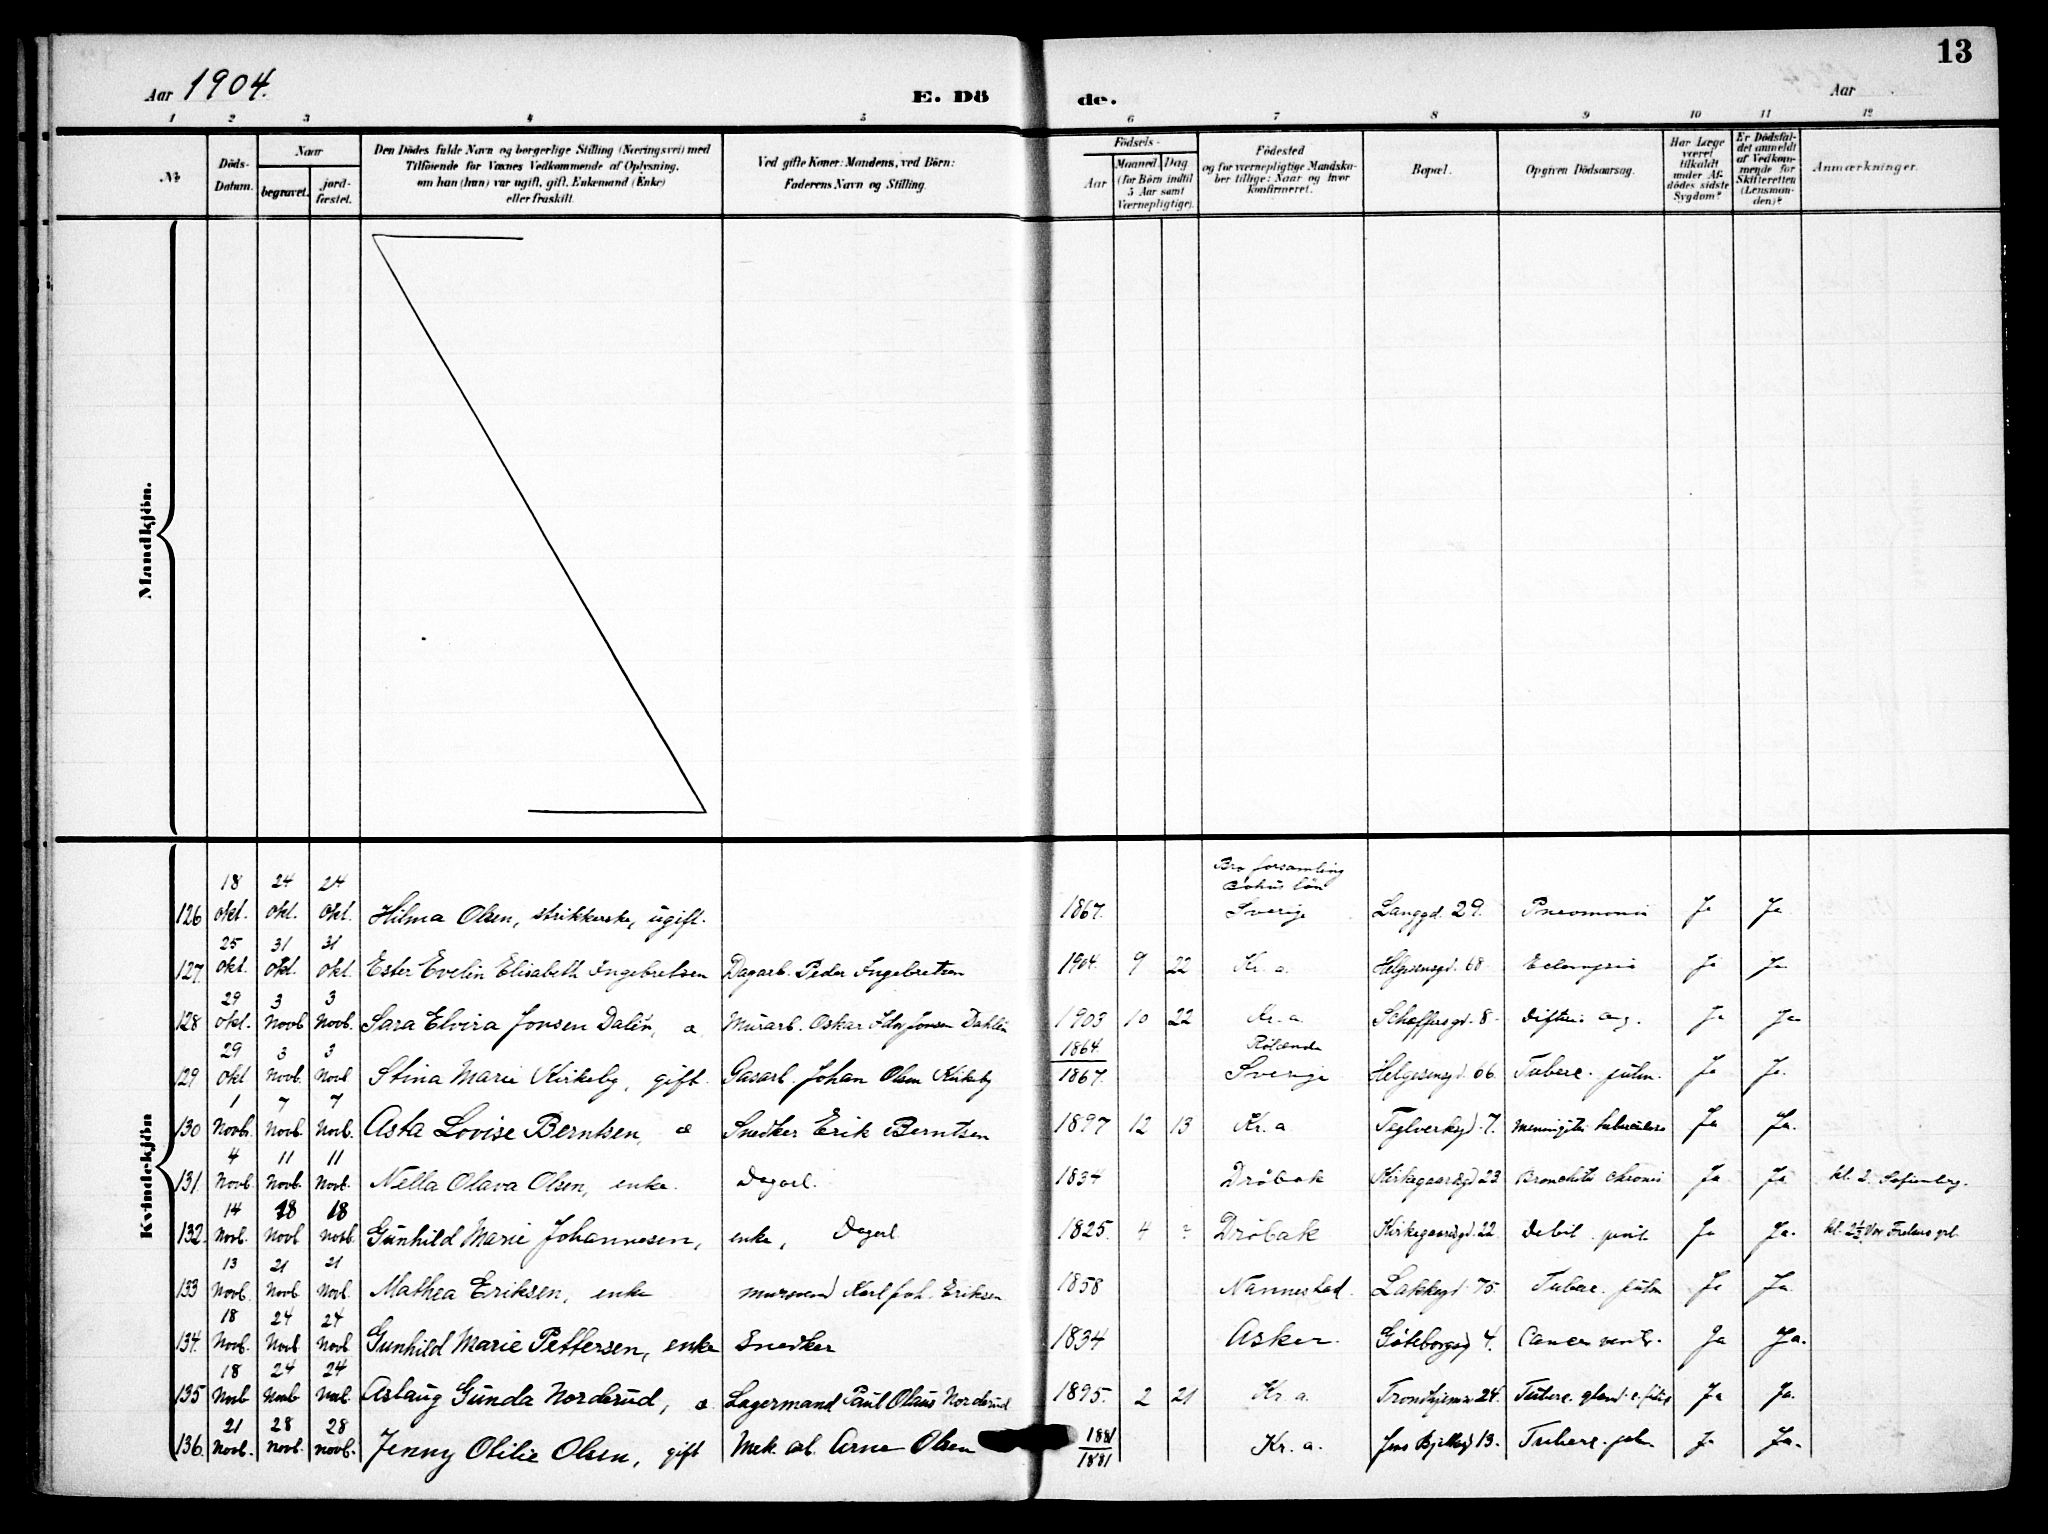 13
Aar 1904.
E. Dö
de.
Aar
1 2 3 4 5 6 7 8 9 10 11 12
No
Döds-Datum.
Naar
begravet.
jord-fæstet.
Den Dödes fulde Navn og borgerlige Stilling (Næringsvei) med
Tilföiende for Voxnes Vedkommende af Oplysning,
om han (hun) var ugift, gift, Enkemand (Enke)
eller fraskilt.
Ved gifte Koner: Mandens, ved Börn:
Faderens Navn og Stilling.
Födsels-
Aar
Maaned Dag
(for Börn indtil
5 Aar samt
Værnepligtige).
Födested
og for værnepligtige Mandska-
ber tillige: Naar og hvor
Konfirmeret.
Bopæl.
Opgiven Dödsaarsag.
Har Læge
været
tilkaldt
under Af-
dödes sidste
Sygdom?
Er Dödsfal-
det anmeldt
af Vedkom-
mende for
Skifteretten
(Lensman-
den)?
Anmærkninger.
Mandkjön.
Kvindekjön
126 18 Okt. 24 Okt. 24 Okt. Hilma Olsen, strikkerske, ugift. 1867. Bro forsamling Sverige Langgd. 29. Pneomoni Ja Ja
127. 25 Okt. 31 Okt. 31 Okt. Ester Evelin Elisabeth Ingebretsen Dagarb. Peder Ingebretsen 1904. 9 22 Kr. a. Helgesensgd. 68. Eclampsia Ja Ja
128 29 Okt. 3 Novb 3 Novb. Sara Elvira Jonsen Dalén, Murarb. Oskar Jonsen Dahlén 1903 10 22 Kr. a. Schæffersgd. 8. Difteri Ja Ja
129 29 Okt 3 Novb. 3 Novb Stina Marie Kirkeby, gift. Gasarb. Johan Olsen Kirkeby 1864 1867. Sverige Helgesensgd. 66. Tuberc. pulm. Ja Ja.
130 1 Novb. 7 Novb. 7 Novb. Asta Lovise Berntsen, Snedker Erik Berntsen 1897 12 13 Kr. a. Teglverksgd. 7. Meningitis tuberculosa Ja Ja.
131. 4 Novb 11 Novb. 11 Novb. Nella Olava Olsen, enke. Dagarb. 1834 Dröbak Kirkegaardsgd 23 Bronchitis chronic Ja Ja kl. 2. Sofienberg.
132. 14 Novb. 18 Novb 18 Novb. Gunhild Marie Johannesen, enke, Dagarb. 1825. 4 ? Dröbak Kirkegaardsgd. 22. Debil. senil. Ja Ja. kl. 2½ Vor Frelsers grl.
133 13 Novb. 21 Novb 21 Novb. Mathea Eriksen, enke mursvend Karl Joh. Eriksen 1858 Nannestad. Lakkegd. 75. Tuberc. pulm Ja Ja.
134. 18 Novb. 24 Novb 24 Novb Gunhild Marie Pettersen, enke Snedker 1834 Asker. Göteborggd 4. Cancer ventr. Ja Ja.
135 18 Novb 24 Novb 24 Novb. Aslaug Gunda Norderud, Lagermand Paul Olaus Norderud 1895. 2 21 Kr. a. 24. Tuberc. gland. Ja Ja.
136. 21 Novb. 28 Novb. 28 Novb. Jenny Otilie Olsen, gift Mek. arb. Arne Olsen 1881 1881 Kr. a. Jens Bjelkesgd 13. Tuberc. pulm Ja Ja.